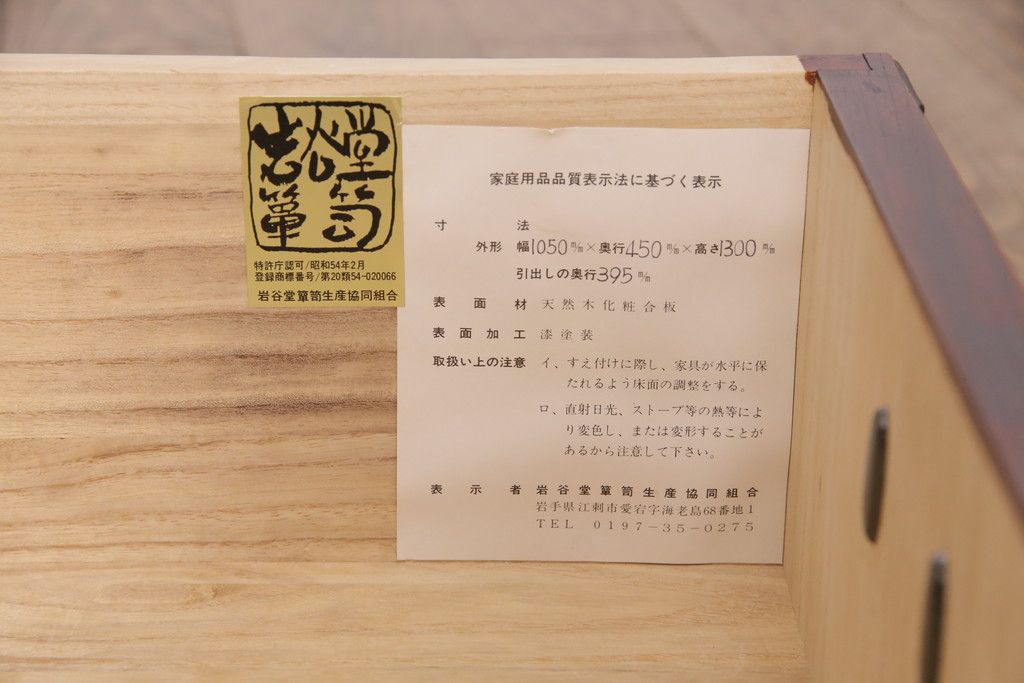 岩谷堂
簞笥
特許庁認可/昭和54年2月
登録商標番号/第20類54-020066
岩谷堂簞笥生産協同組合
家庭用品品質表示法に基づく表示
寸法
外形 幅1050㎜×奥行450㎜×高さ1300㎜
引出しの奥行395㎜
表面材 天然木化粧合板
表面加工 漆塗装
取扱い上の注意 イ、すえ付けに際し、家具が水平に保
たれるよう床面の調整をする。
ロ、直射日光、ストーブ等の熱等によ
り変色し、または変形することが
あるから注意して下さい。
表示者 岩谷堂簞笥生産協同組合
岩手県江刺市愛宕字海老島68番地1
TEL 0197-35-0275